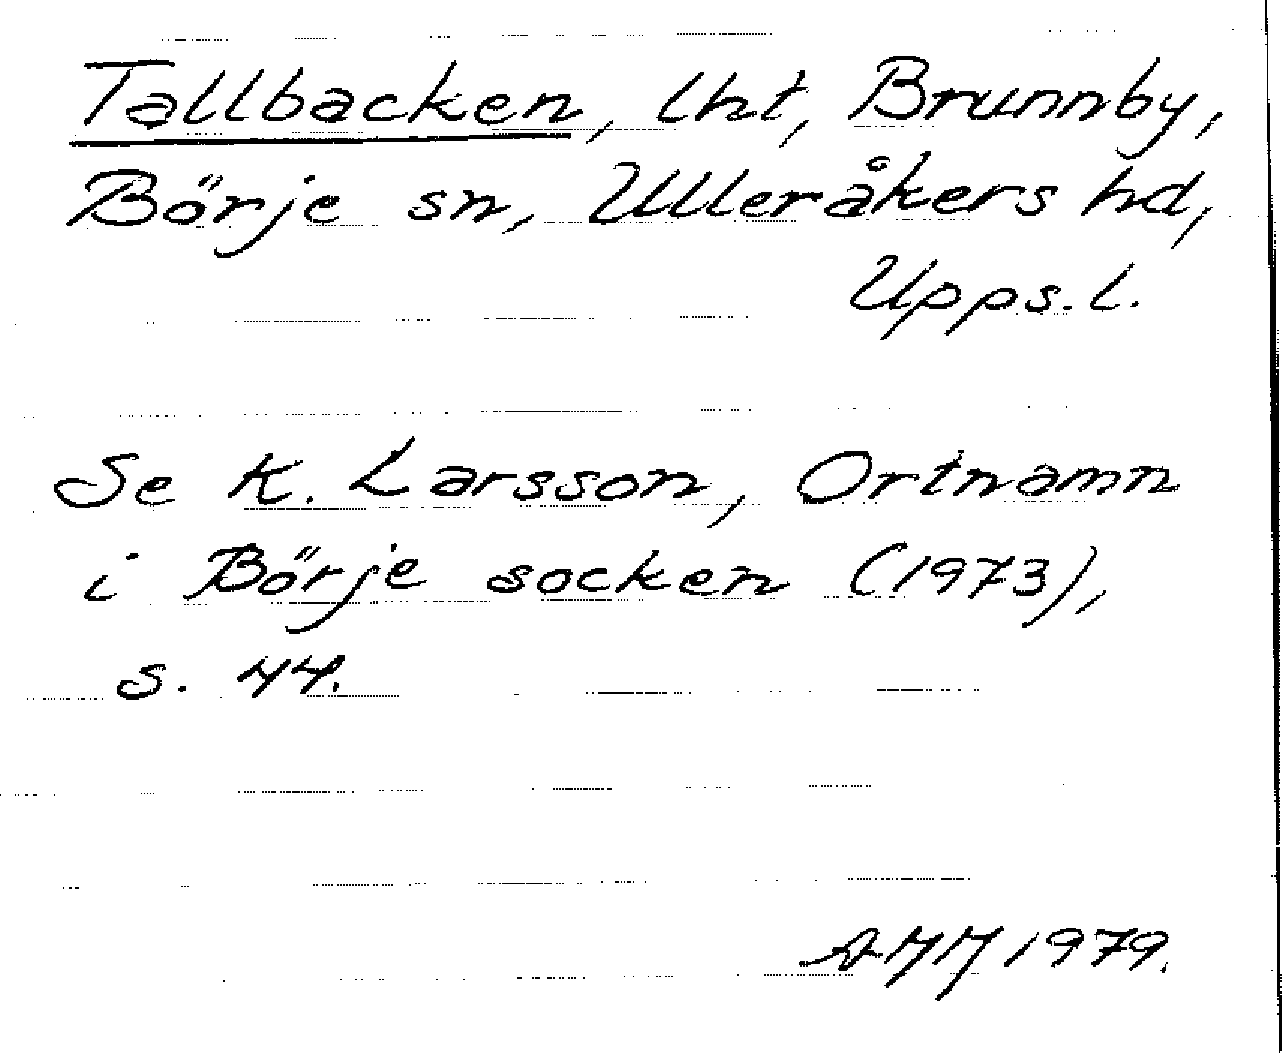 Tallbacken, lht, Brunnby,
Börje sn, Ulleråkers hd,
Upps. l.
Se K. Larsson, Ortnamn
i Börje socken (1973),
s. 44.
1979.